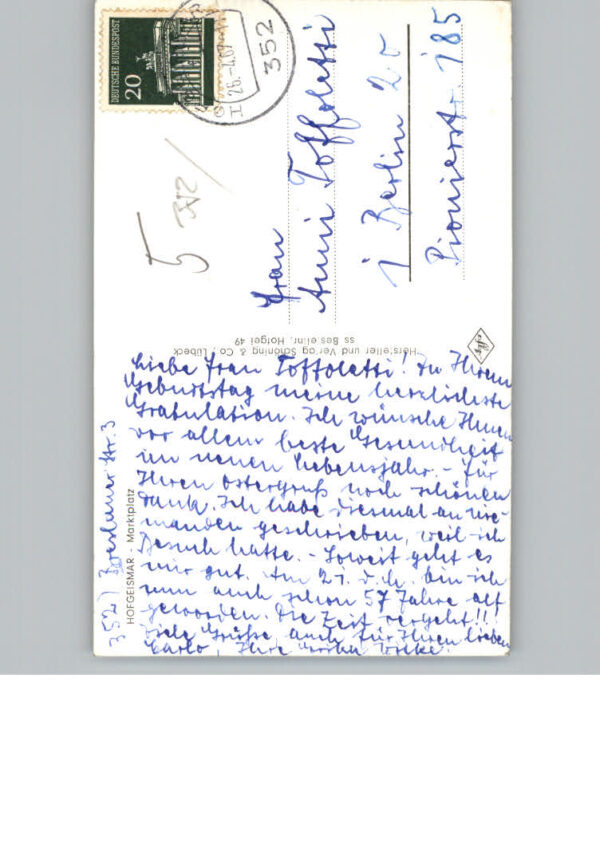 DEUTSCHE BUNDESPOST
20
352
26.-4.67
5
Frau
Anni Toffoletti
1 Berlin 20
Pionierstr. 185
Hersteller und Verlag Schöning & Co., Lübeck
ss Bestellnr. Hofgei 49
HOFGEISMAR - Marktplatz
3527 Breslauer Str. 3
Liebe Frau Toffoletti! Zu Ihrem
Geburtstag meine herzlichste
Gratulation. Ich wünsche Ihnen
vor allem beste Gesundheit
im neuen Lebensjahr. - Für
Ihren Ostergruß noch schönen
Dank. Ich habe diesmal an nie-
manden geschrieben, weil ich
Besuch hatte. - Soweit geht es
mir gut. Am 21. d. M. bin ich
nun auch schon 57 Jahre alt
geworden. Die Zeit vergeht!!!
Viele Grüße auch für Ihren lieben
Carlo, Ihre